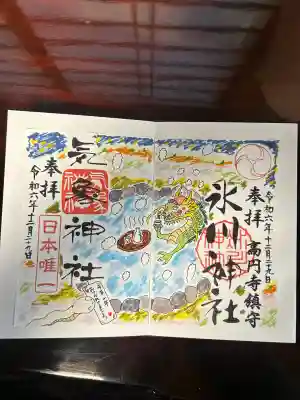 奉拝
高円寺鎮守
令和六年十二月二十九日
氷川神社
気象神社
奉拝
令和六年十二月二十九日
日本唯一
気象神社